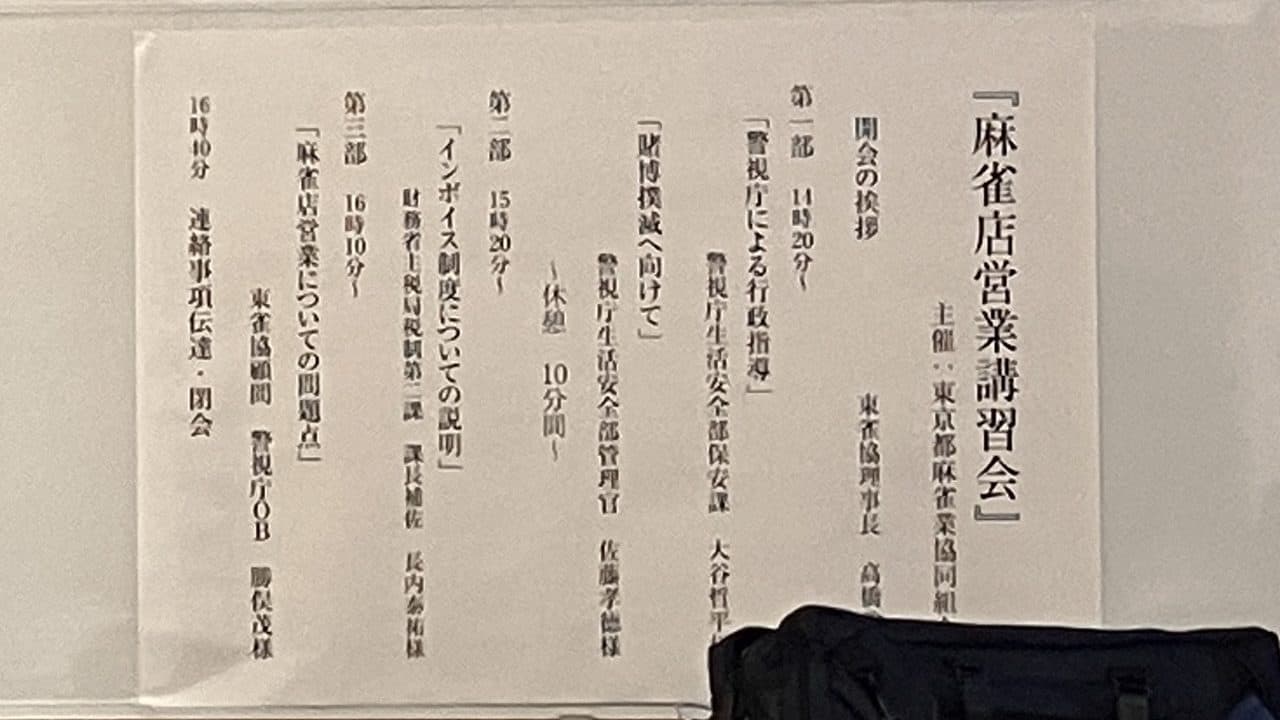 『麻雀店営業講習会』
主催：東京都麻雀業協同組
開会の挨拶 東雀協理事長 高橋
第一部 14時20分～
「警視庁による行政指導」
警視庁生活安全部保安課 大谷哲平
「賭博撲滅へ向けて」
警視庁生活安全部管理官 佐藤孝徳様
～休憩 10分間～
第二部 15時20分～
「インボイス制度についての説明」
財務省主税局税制第二課 課長補佐 長内泰祐様
第三部 16時10分～
「麻雀店営業についての問題点」
東雀協顧問 警視庁OB 勝俣茂様
16時40分 連絡事項伝達・閉会